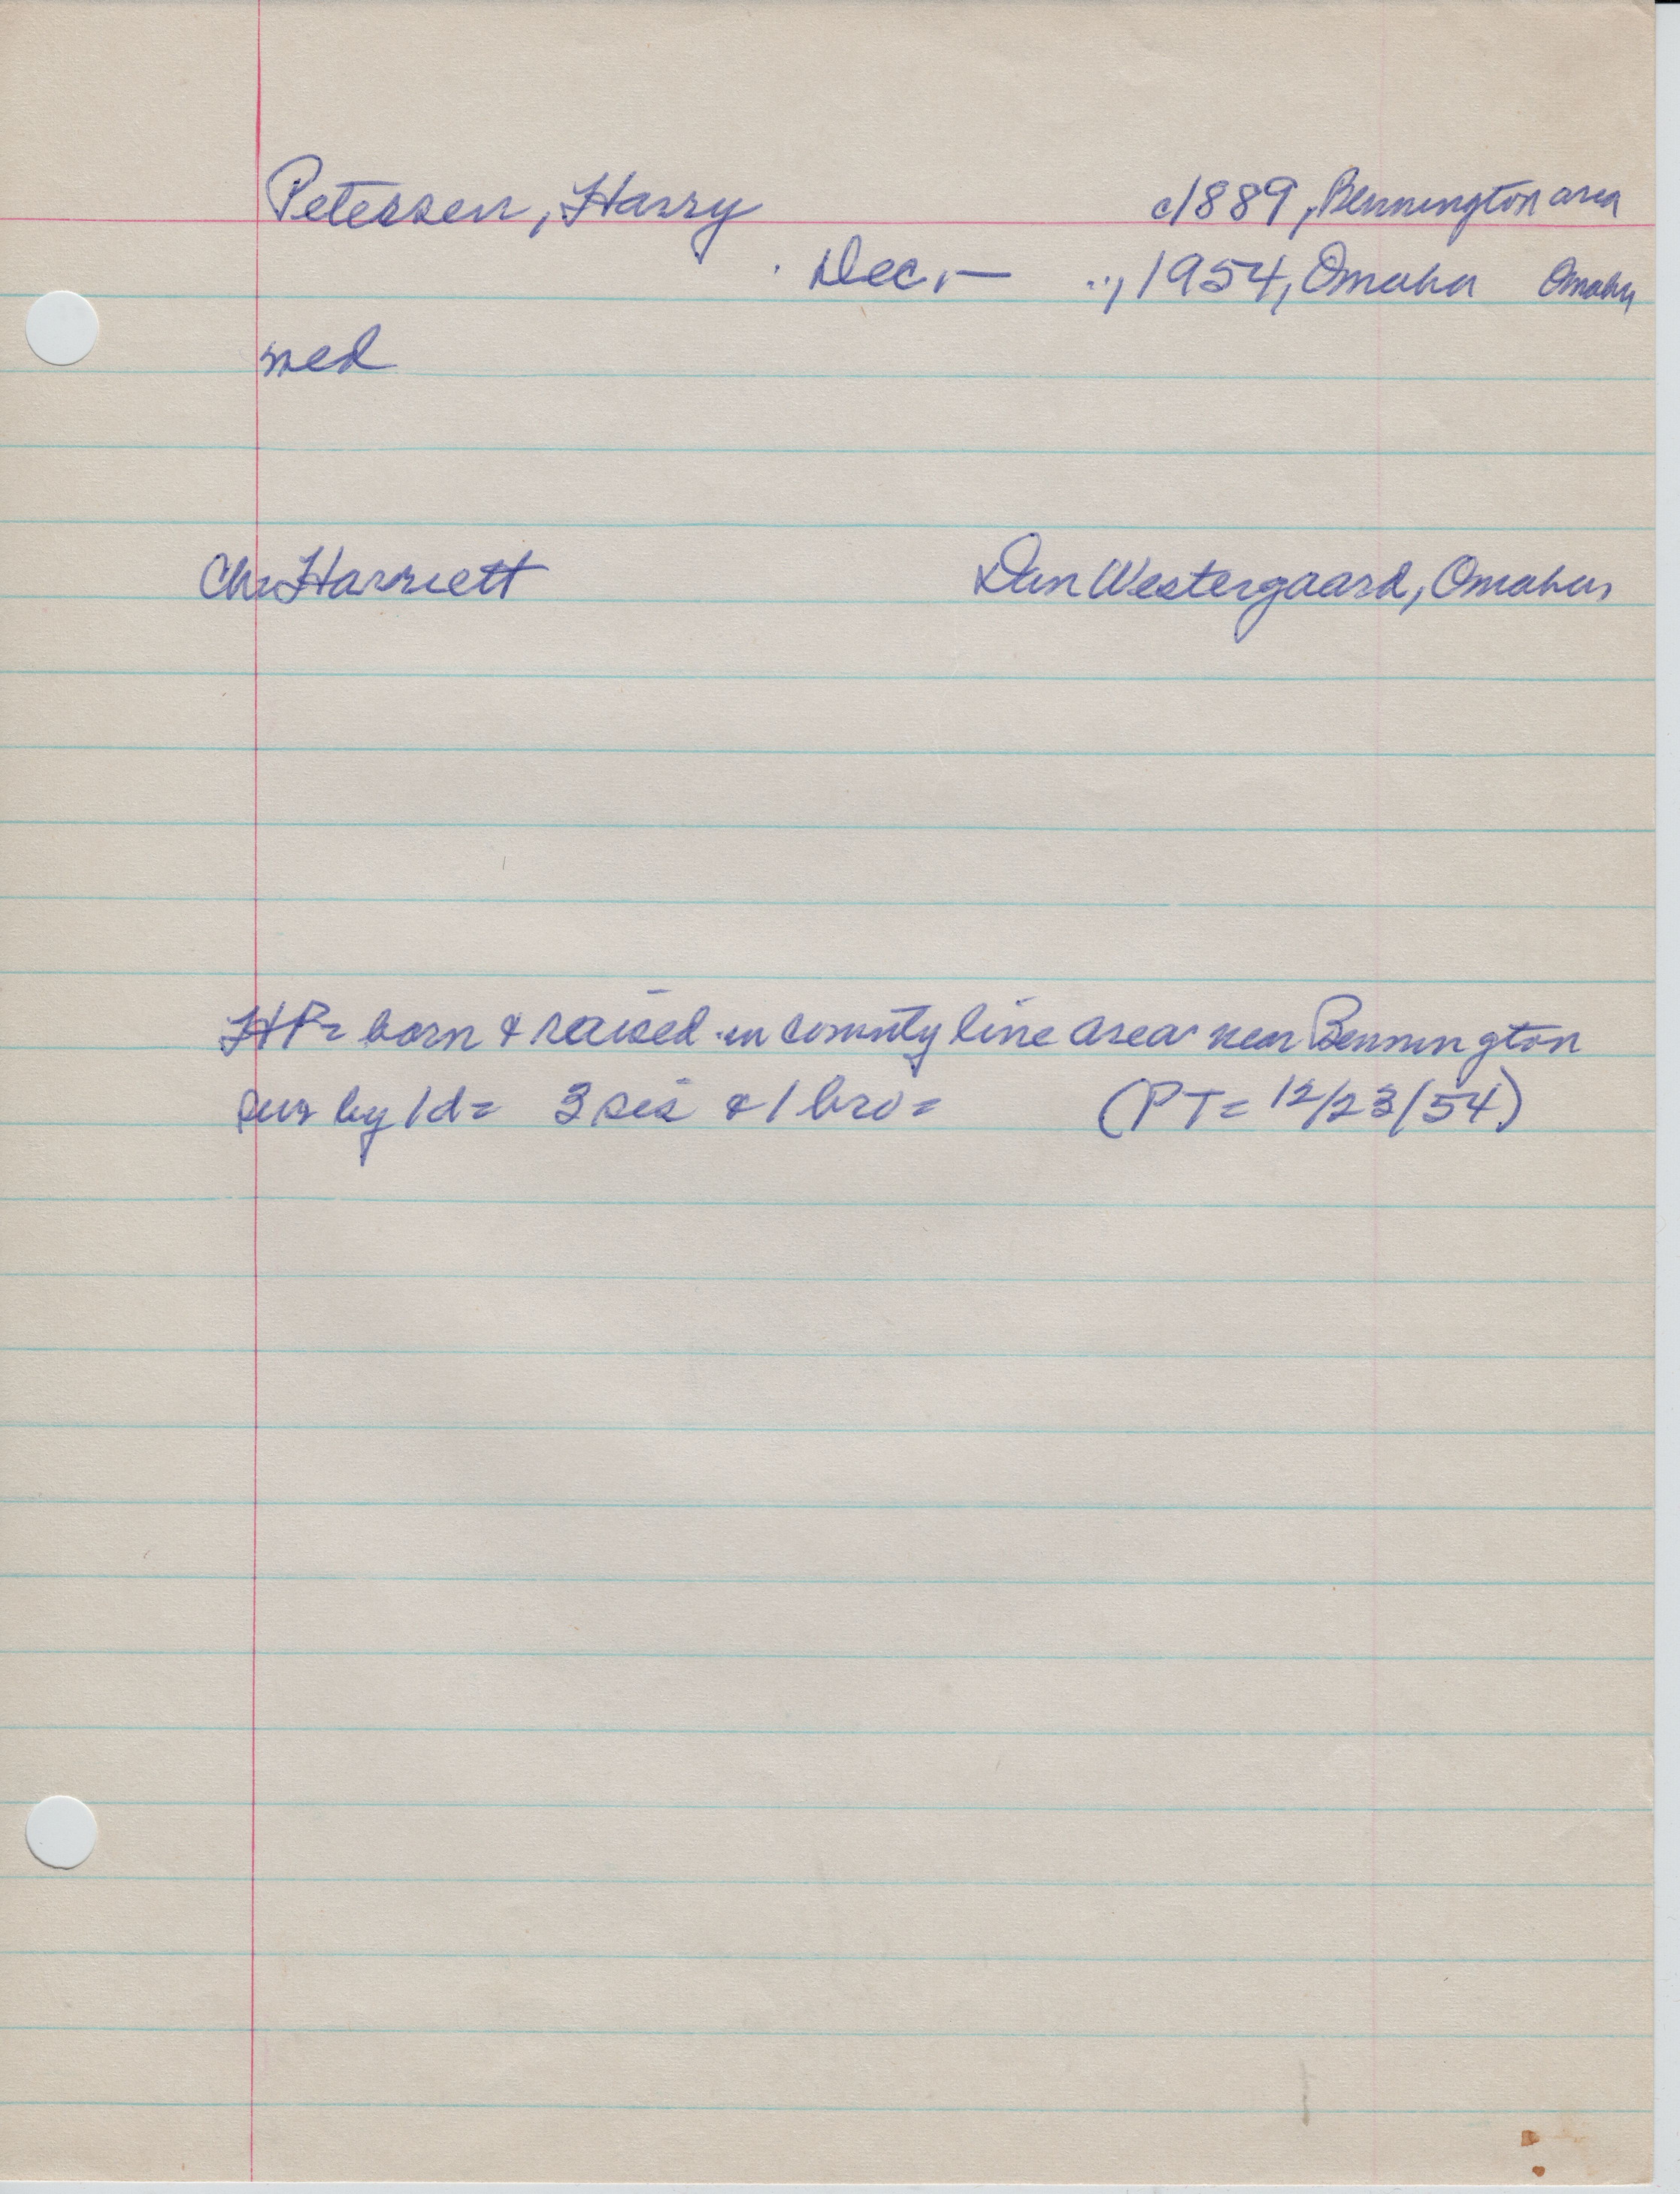 Petersen, Harry c1889, Bennington area
Dec. — .., 1954, Omaha Omaha
med
Ch= Harriett Dan Westergaard, Omaha,
HP= born & raised in county line area near Bennington
sur by 1d= 3 sis & 1 bro= (PT= 12/23/54)